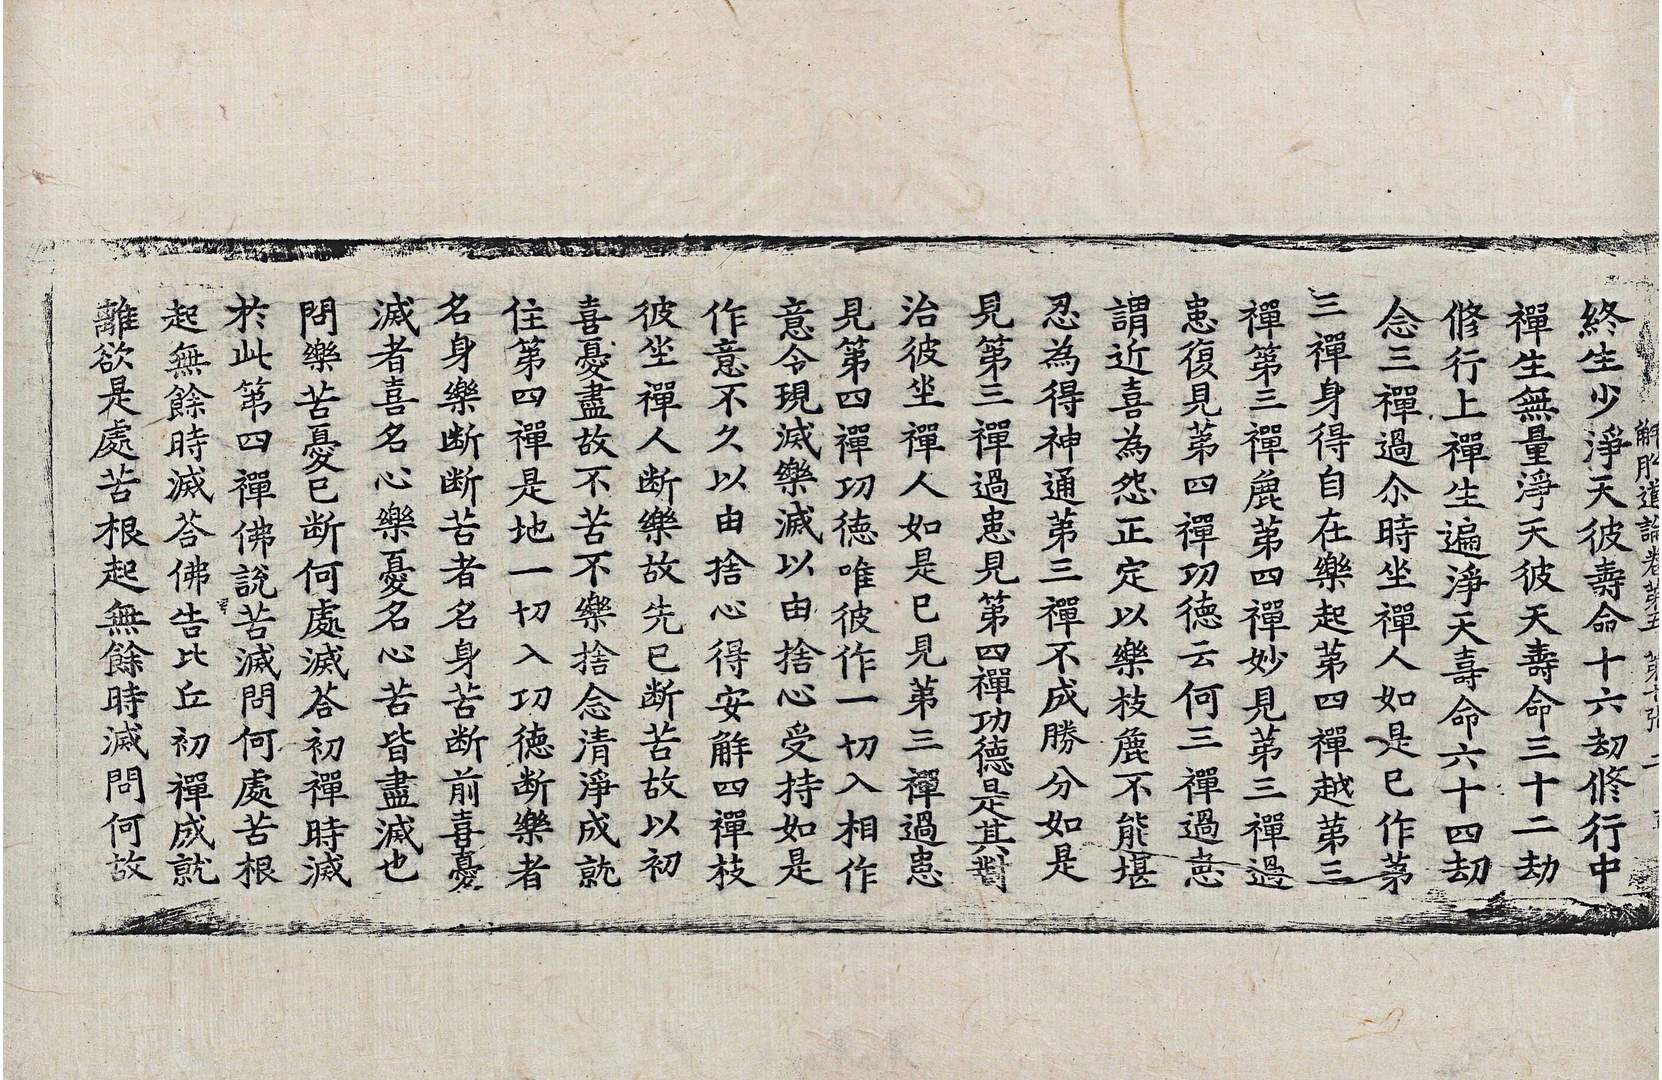 解脫道論卷第五　第　張　二
終生少淨天彼壽命十六劫修行中
禪生無量淨天彼天壽命三十二劫
修行上禪生遍淨天壽命六十四劫
念三禪過尒時坐禪人如是已作第
三禪身得自在樂起第四禪越第三
禪第三禪麁第四禪妙見第三禪過
患復見第四禪功德云何三禪過患
謂近喜為怨正定以樂枝麁不能堪
忍為得神通第三禪不成勝分如是
見第三禪過患見第四禪功德是其對
治彼坐禪人如是已見第三禪過患
見第四禪功德唯彼作一切入相作
意令現滅樂滅以由捨心受持如是
作意不久以由捨心得安解四禪枝
彼坐禪人断樂故先已断苦故以初
喜憂盡故不苦不樂捨念清淨成就
住第四禪是地一切入功德断樂者
名身樂断断苦者名身苦断前喜憂
滅者喜名心樂憂名心苦皆盡滅也
問樂苦憂已断何處滅荅初禪時滅
於此第四禪佛說苦滅問何處苦根
起無餘時滅荅佛告比丘初禪成就
離欲是處苦根起無餘時滅問何故